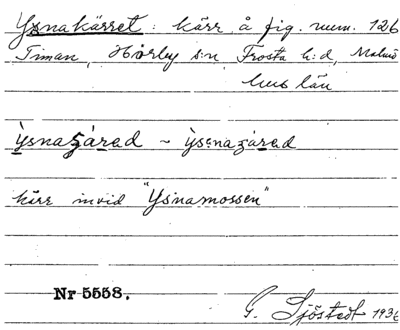 Ysnakärret : kärr å fig. num. 126
Timan, Hörby s:n Frosta h:d, Malmö
hus län
ỳsnaʒárad ~ ỳsənaʒárad
kärr invid "Ysnamossen"
Nr 5558.
G. Sjöstedt 1936